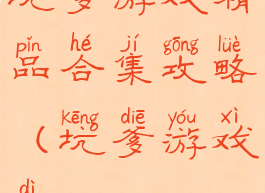 坑爹游戏精
pǐn hé jí gōng lüè
品合集攻略
kēng diē yóu xì
(坑爹游戏
dì